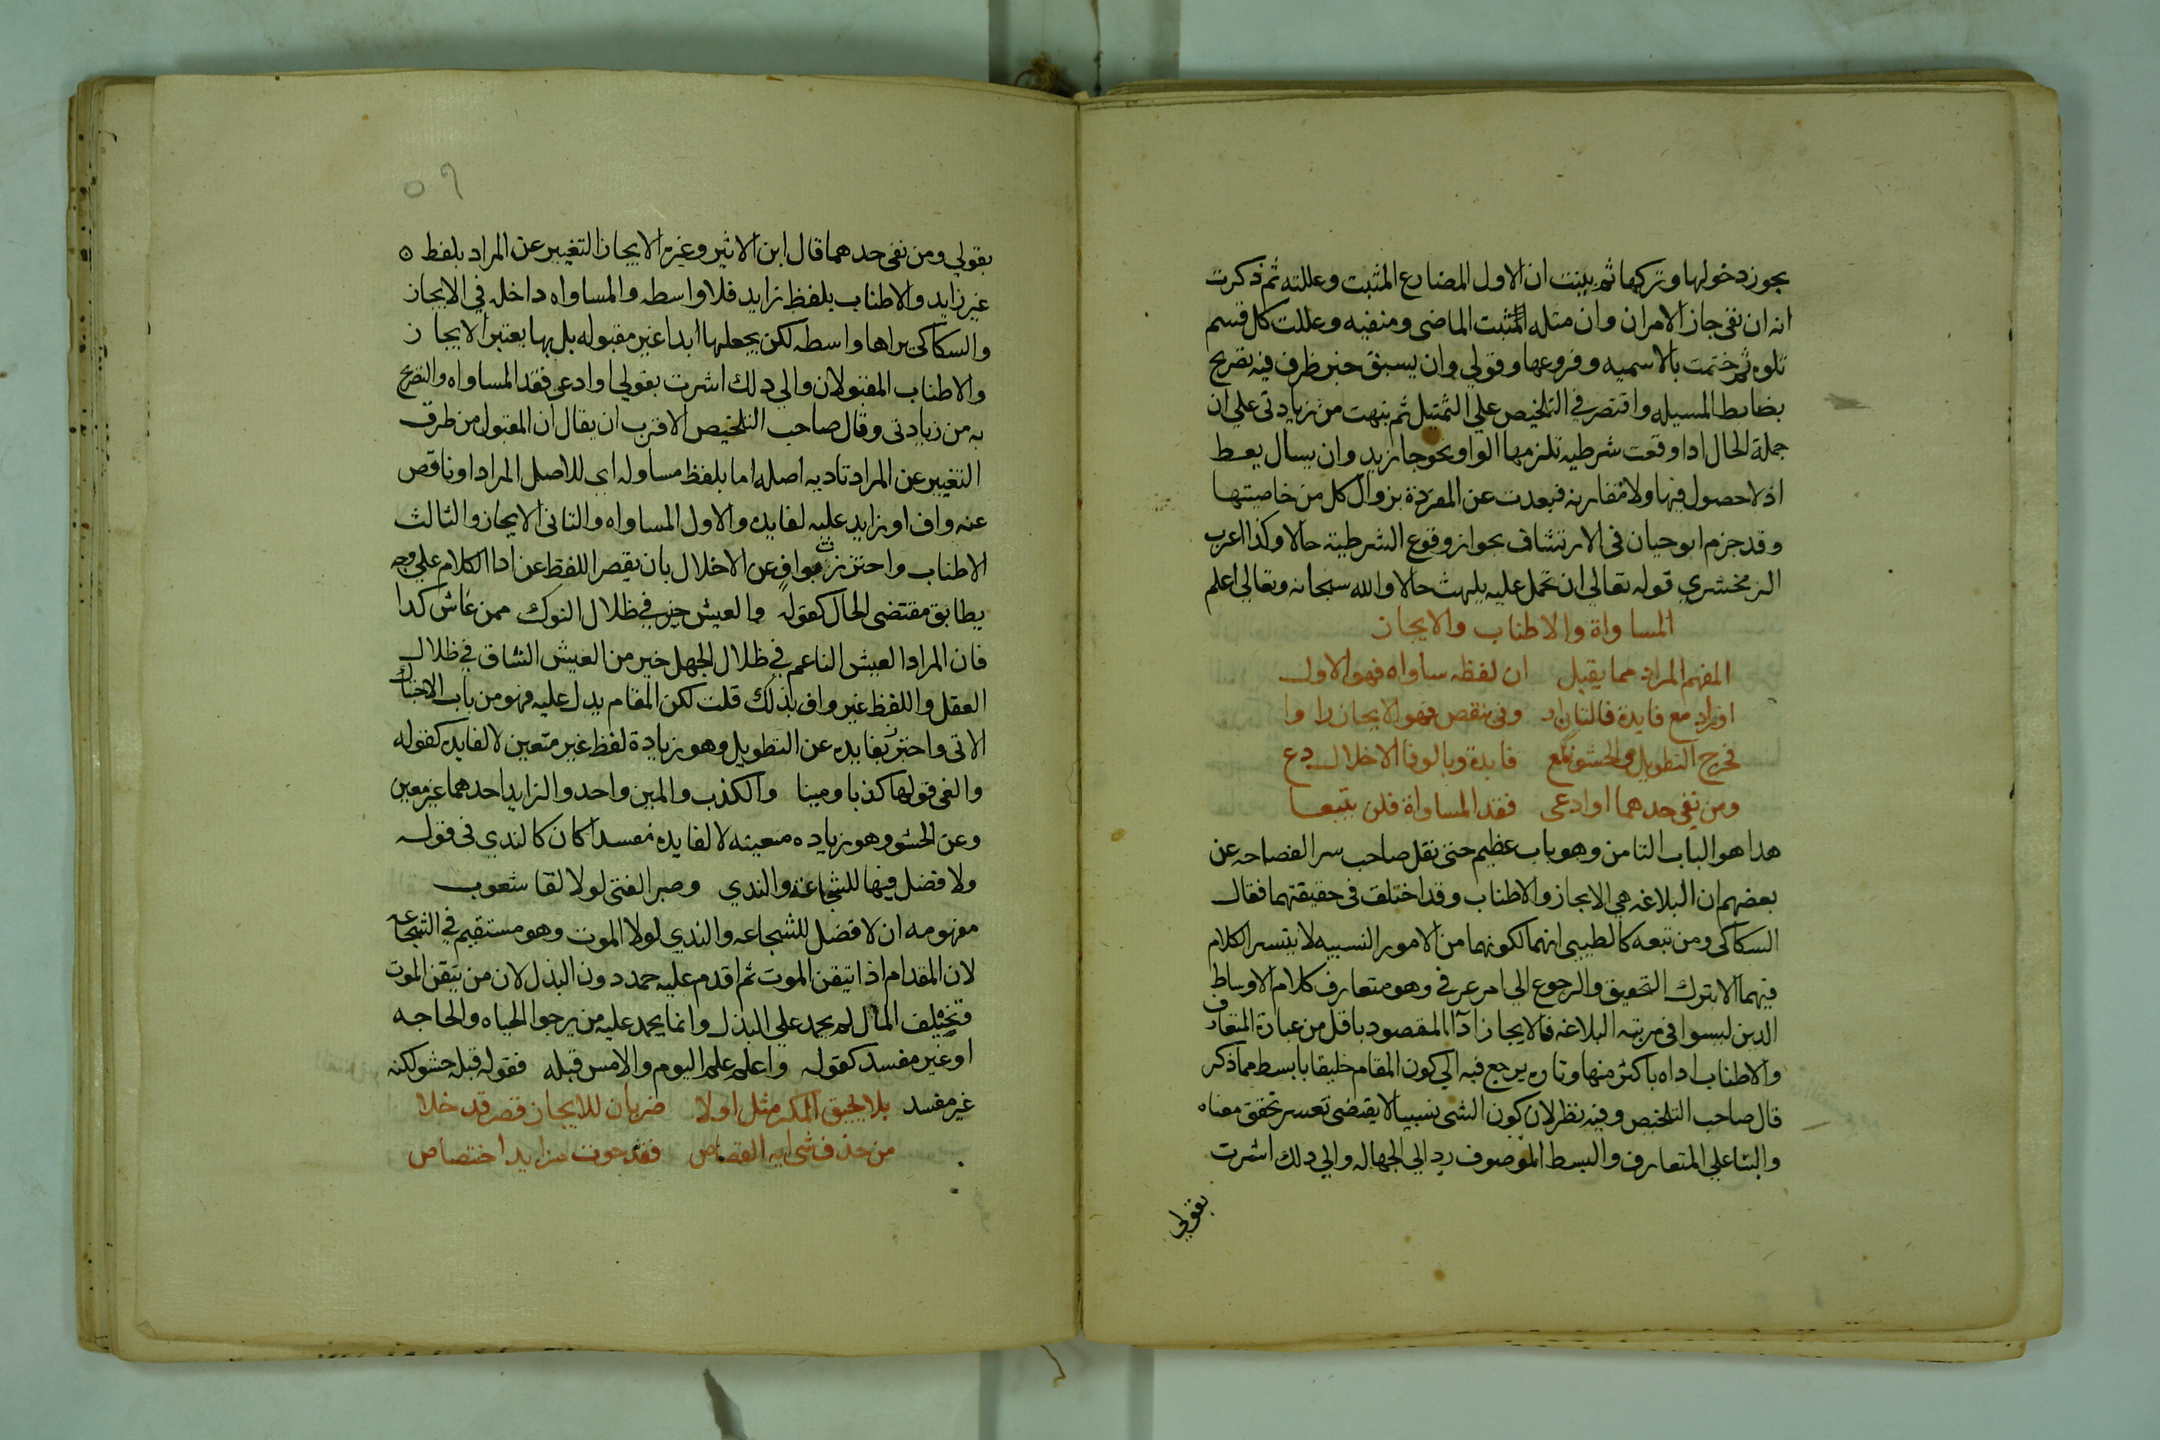 يجوز دخولها وتركها ثم بينت ان الاول المضارع المثبت وعللته ثم ذكرت
انه ان نفى جاز الامران وان مثله المثبت الماضي ومنفيه وعللت كل قسم
تلوه ثم ختمت بالاسميه وفروعها وقولي وان يسبق خبر ظرف فيه تصريح
بضابط المسيله واقتصر في التلخيص علي التمثيل ثم نبهت من زيادتي علي ان
جملة الحال اذا وقعت شرطيه تلزمها الواو نحو جا زيد وان يسال يعط
اذ لا حصول فيها ولا مقارنه فبعدت عن المفردة بزوال كل من خاصيتها
وقد جزم ابو حيان في الارتشاف بجواز وقوع الشرطية حالا وكذا اعرب
الزمخشري قوله تعالي ان تحمل عليه يلهث حالا والله سبحانه وتعالي اعلم
المساواة والاطناب والايجاز
المفهم المراد مما يقبل ان لفظه ساواه فهو الاول
او زاد مع فايدة فالثان او وفي بنقص فهو الايجاز راوا
فخرج التطويل والحشو بمع فايدة وبالوفا الاخلال دع
ومن نفي حدهما او ادعى فقد المساواة فلن يتبعا
هذا هو الباب الثامن وهو باب عظيم حتى نقل صاحب سر الفصاحه عن
بعضهم ان البلاغه هي الايجاز والاطناب وقد اختلف في حقيقتهما فقال
السكاكي ومن تبعه كالطيبي انهما لكونهما من الامور النسبيه لا يتيسر الكلام
فيهما الا بترك التحقيق والرجوع الي امر عرفي وهو متعارف كلام الاوساط
الذين ليسوا في مرتبة البلاغه فالايجاز ادآ المقصود باقل من عبارة المتعارف
والاطناب اداه باكثر منها وتاره يرجع فيه الي كون المقام خليقا بابسط مما ذكر
قال صاحب التلخيص وفيه نظر لان كون الشي نسبيا لا يقتضي تعسر تحقق معناه
والبنا علي المتعارف والبسط الموصوف رد الي الجهاله والي ذلك اشرت
بقولي
٥٩
بقولي ومن نفى حدهما قال ابن الاثير وغيره الايجاز التعبير عن المراد بلفظ ٥
غير زايد والاطناب بلفظ زايد فلا واسطه والمساواه داخله في الايجاز
والسكاكي يراها واسطه لكن يجعلها ابدا غير مقبوله بل بها يعتبر الايجاز
والاطناب المقبولان والي ذلك اشرت بقولي او ادعى فقد المساواه والتصريح
به من زيادتي وقال صاحب التلخيص الاقرب ان يقال ان المقبول من طرق
التعبير عن المراد تاديه اصله اما بلفظ مساو له اي للاصل المراد او ناقص
عنه واف او زايد عليه لفايده والاول المساواه والثاني الايجاز والثالث
الاطناب واحترزت بواف عن الاخلال بان يقصر اللفظ عن ادا الكلام علي وجه
يطابق مقتضى الحال كقوله والعيش خير في ظلال النوك ممن عاش كدا
فان المراد العيش الناعم في ظلال الجهل خير من العيش الشاق في ظلال
العقل واللفظ غير واف بذلك قلت لكن المقام يدل عليه فهو من باب الاحتباك
الاتي واحترز بفايده عن التطويل وهو زيادة لفظ غير متعين لا لفايده كقوله
والفى قولها كذبا ومينا والكذب والمين واحد والزايد احدهما غير معين
وعن الحشو وهو زياده متعينه لا لفايده مفسدا كان كالندي في قوله
ولا فضل فيها للشجاعة والندي وصبر الفتى لولا لقا شعوب
مفهومه ان لا فضل للشجاعه والندي لولا الموت وهو مستقيم في الشجاعه
لان المقدام اذا تيقن الموت ثم اقدم عليه حمد دون البذل لان من تيقن الموت
وتخلف المال لم يحمد علي البذل وانما يحمد عليه من يرجوا الحياه والحاجه
او غير مفسد كقوله واعلم علم اليوم والامس قبله فقوله قبله حشو لكنه
غير مفسد بلا يحيق المكر مثل اولا ضربان للايجاز قصر قد خلا
من حذف شي ايه القصاص فقد حوت مزايدا اختصاص